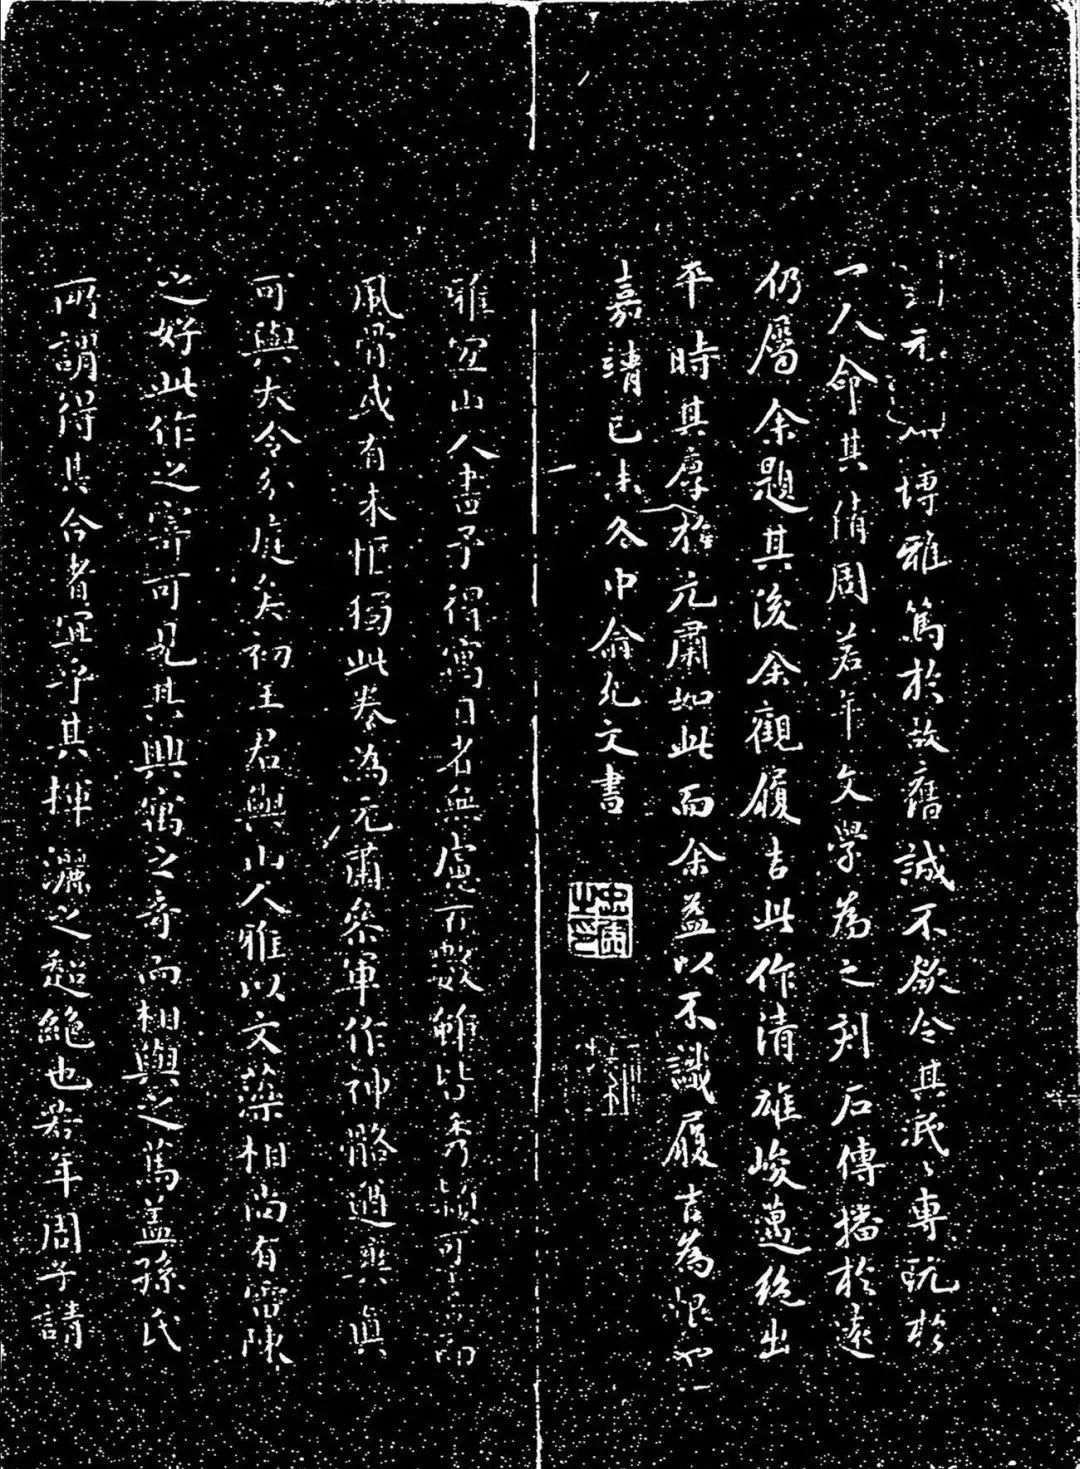 元 博雅篤於故舊誠不欲令其泯〻專玩於
一人命其倩周若年文學為之刻石傳播於遠
仍屬余題其後余觀履吉此作清雄峻邁絶出
平時其厚於元肅如此而余益以不識履吉為恨也
嘉靖己未冬中俞允文書
雅宜山人書予得寓目者無慮百數雖皆秀穎可 而
風骨或有未恇獨此卷為元肅參軍作神骼遒爽真
可與大令分庭矣初王君與山人雅以文藻相尚有雷陳
之好此作之寄可見其興寓之奇而相與之篤蓋孫氏
所謂得其合者宜乎其揮灑之超絶也若年周子請